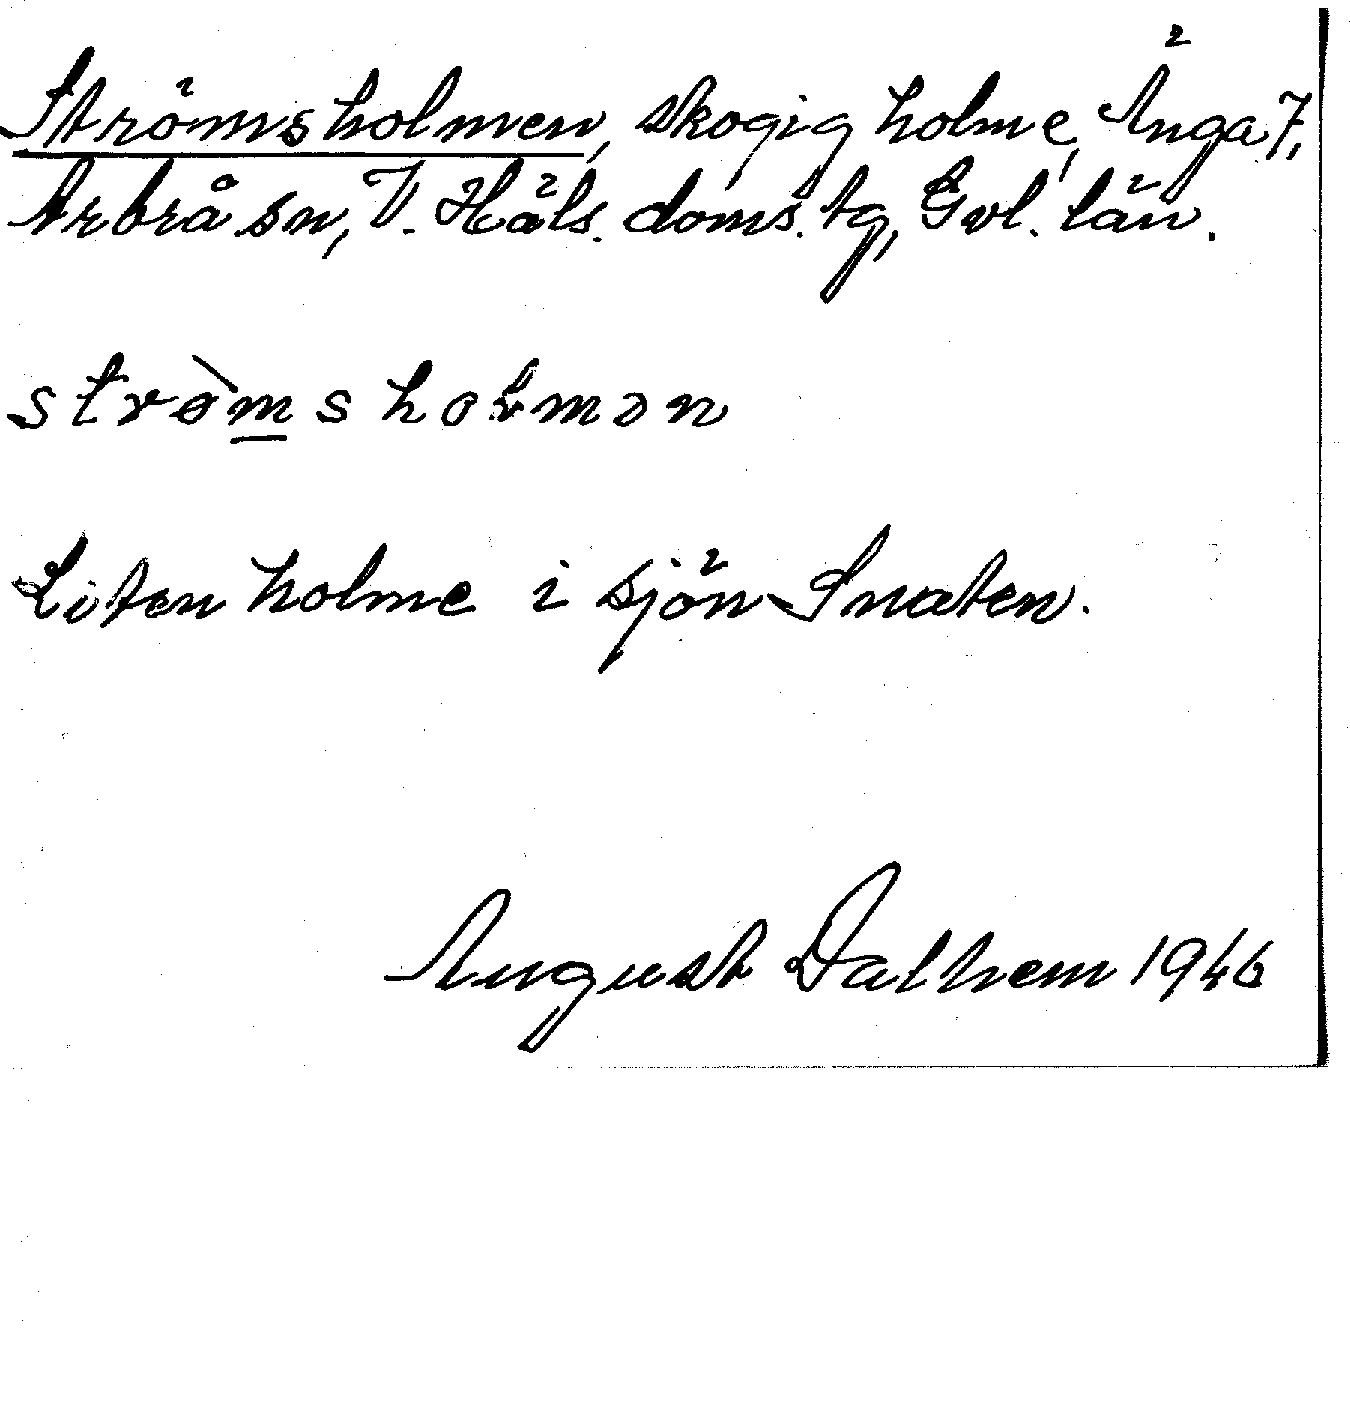 Strömsholmen, skogig holme, Änga 7,
Arbrå sn, V. Häls. doms. tg, Gvl. län.
strø̀msholmən
Liten holme i sjön Snaten.
August Dalhem 1946